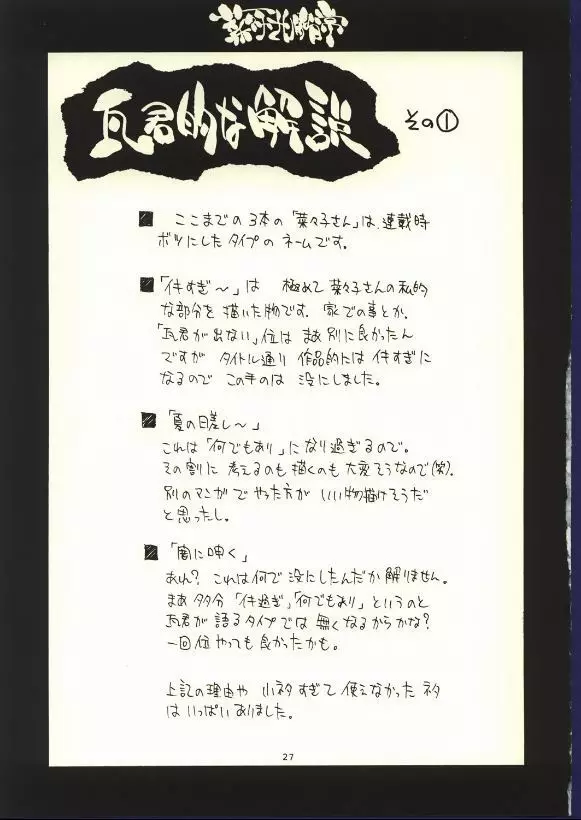 瓦君的な解説 その①
■ ここまでの3本の「菜々子さん」は、連載時
ボツにしたタイプのネームです。
■「イキすぎ〜」は 極めて菜々子さんの私的
な部分を描いた物です。家での事とか、
「瓦君が出ない」位は まあ別に良かったん
ですが タイトル通り 作品的にはイキすぎに
なるので この手のは 没にしました。
■「夏の日差し〜」
これは「何でもあり」になり過ぎるので。
その割に 考えるのも描くのも大変そうなので(笑)。
別のマンガで やった方が いい物描けそうだ
と思ったし。
■「闇に呻く」
あれ? これは何で没にしたんだか解りません。
まあ多分「イキ過ぎ」、「何でもあり」というのと
瓦君が語るタイプでは無くなるからかな?
一回位やっても良かったかも。
上記の理由や 小ネタすぎて使えなかった ネタ
はいっぱいありました。
27